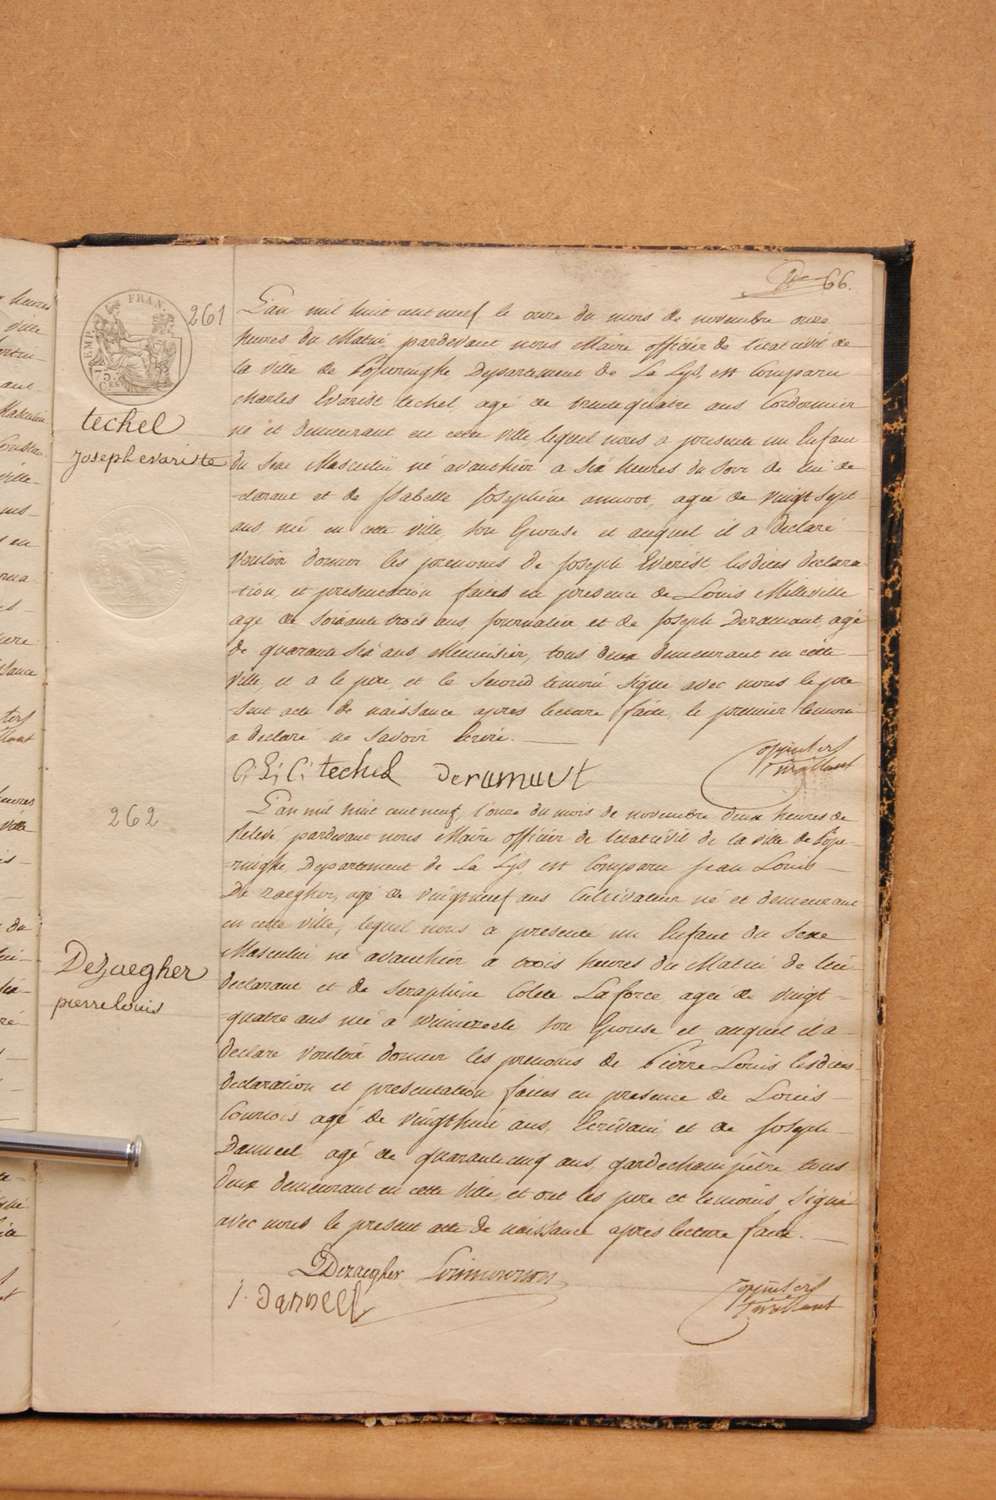 66.
261
techel
joseph evariste
L'an mil huit cent neuf le onze du mois de novembre onze
heures du Matin, pardevant nous Maire officier de l'etat civil de
la ville de Poperinghe Departement de La Lys, est Comparu
charles Evarist techel, agé de trente quatre ans Cordonnier
né et demeurant en cette ville, lequel nous a presenté un Enfant
du Sexe Masculin né avanthier a six heures du soir de lui de
clarant et de Isabelle Josephine annoot, agée de vingt sept
ans né en cette ville, son Epouse et auquel il a declaré
vouloir donner les prenoms de Joseph Evarist lesdites declara
-tion, et presentation faites en presence de Louis Milleville
agé de soixante trois ans, journalier et de Joseph Deramaut, agé
de quarante six ans Menuisier, tous deux demeurant en cette
ville, et a le pere, et le second temoin signé avec nous le pre
sent acte de naissance apres lecture faite, le premier temoin
a declaré ne savoir Ecrire.
techel Deramaut
262
Dezaegher
pierre louis
L'an mil huit cent neuf, l'onze du mois de novembre deux heures de
Relevé pardevant nous Maire officier de l'etat civil de la ville de Pope
-ringhe, Departement de La Lys, est Comparu Jean Louis
De zaegher, agé de vingt neuf ans Cultivateur né et demeurant
en cette ville, lequel nous a presenté un Enfant du Sexe
Masculin né avanthier a trois heures du Matin de lui
declarant et de Seraphine Colete Laforce, agée de vingt
-quatre ans née a son Epouse et auquel il a
declaré vouloir donner les prenoms de Pierre Louis lesdites
declaration et presentation faites en presence de Louis
Courtois agé de vingthuit ans, Ecrivain et de Joseph
Danneel agé de quarante cinq ans, gardechampêtre tous
deux demeurant en cette ville, et ont les pere et temoins signé
avec nous le present acte de naissance après lecture faite.
Dezaegher
J. Danneel